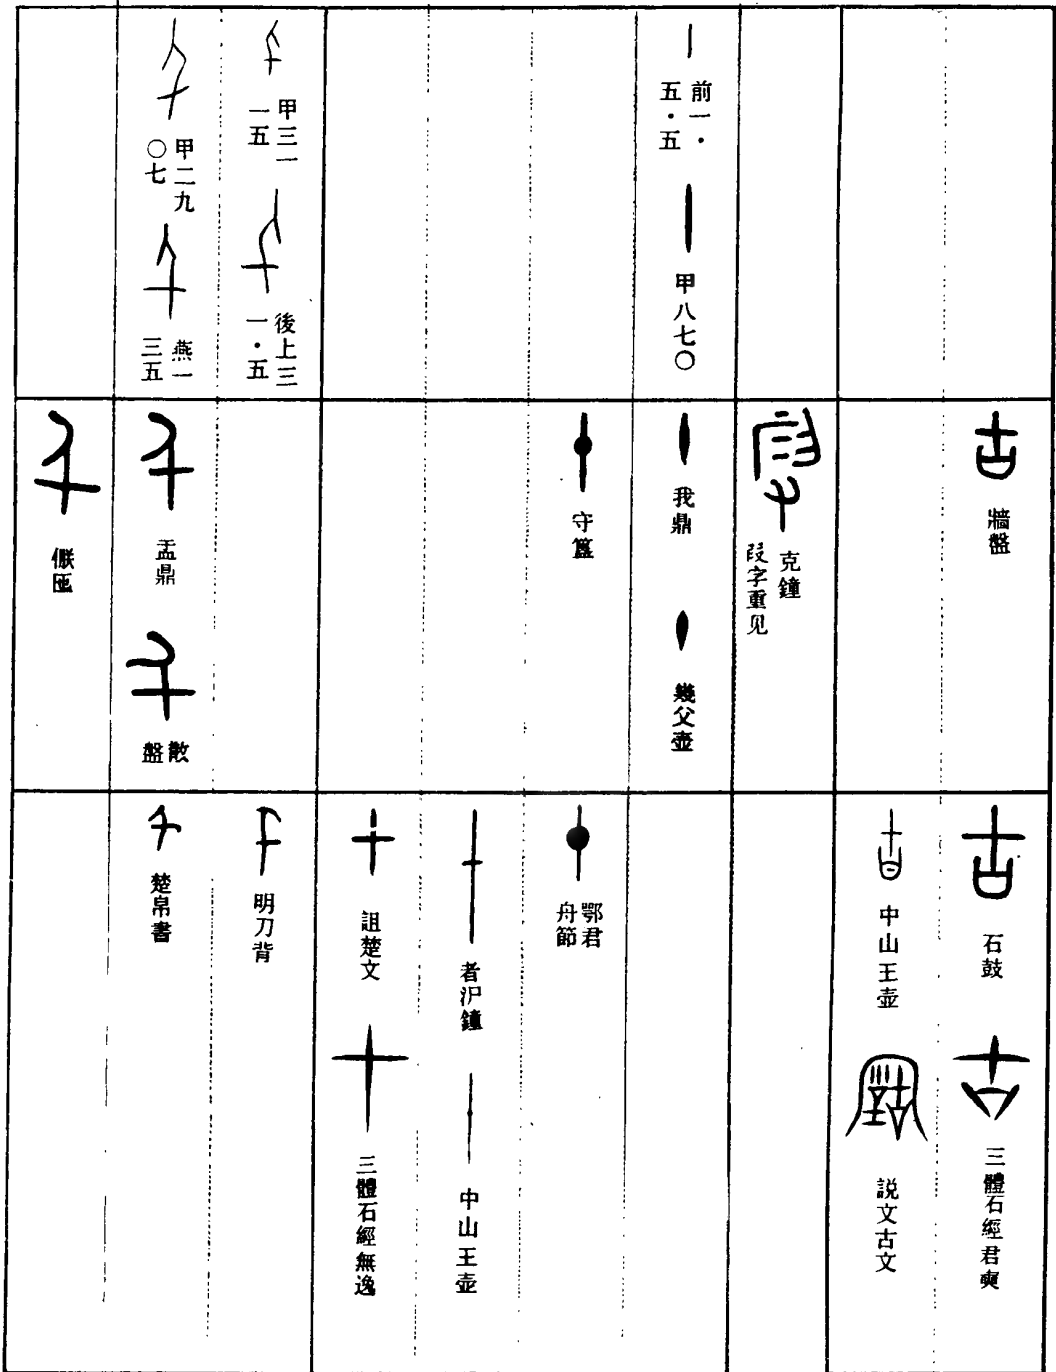 前一・
五・五
甲八七〇
甲三一
一五
後上三
一・五
甲二九
〇七
燕一
三五
牆盤
克鐘
叚字重见
我鼎
幾父壺
守簋
盂鼎
散
盤
匜
石鼓
三體石經君奭
中山王壺
説文古文
鄂君
舟節
者沪鐘
中山王壺
詛楚文
三體石經無逸
明刀背
楚帛書